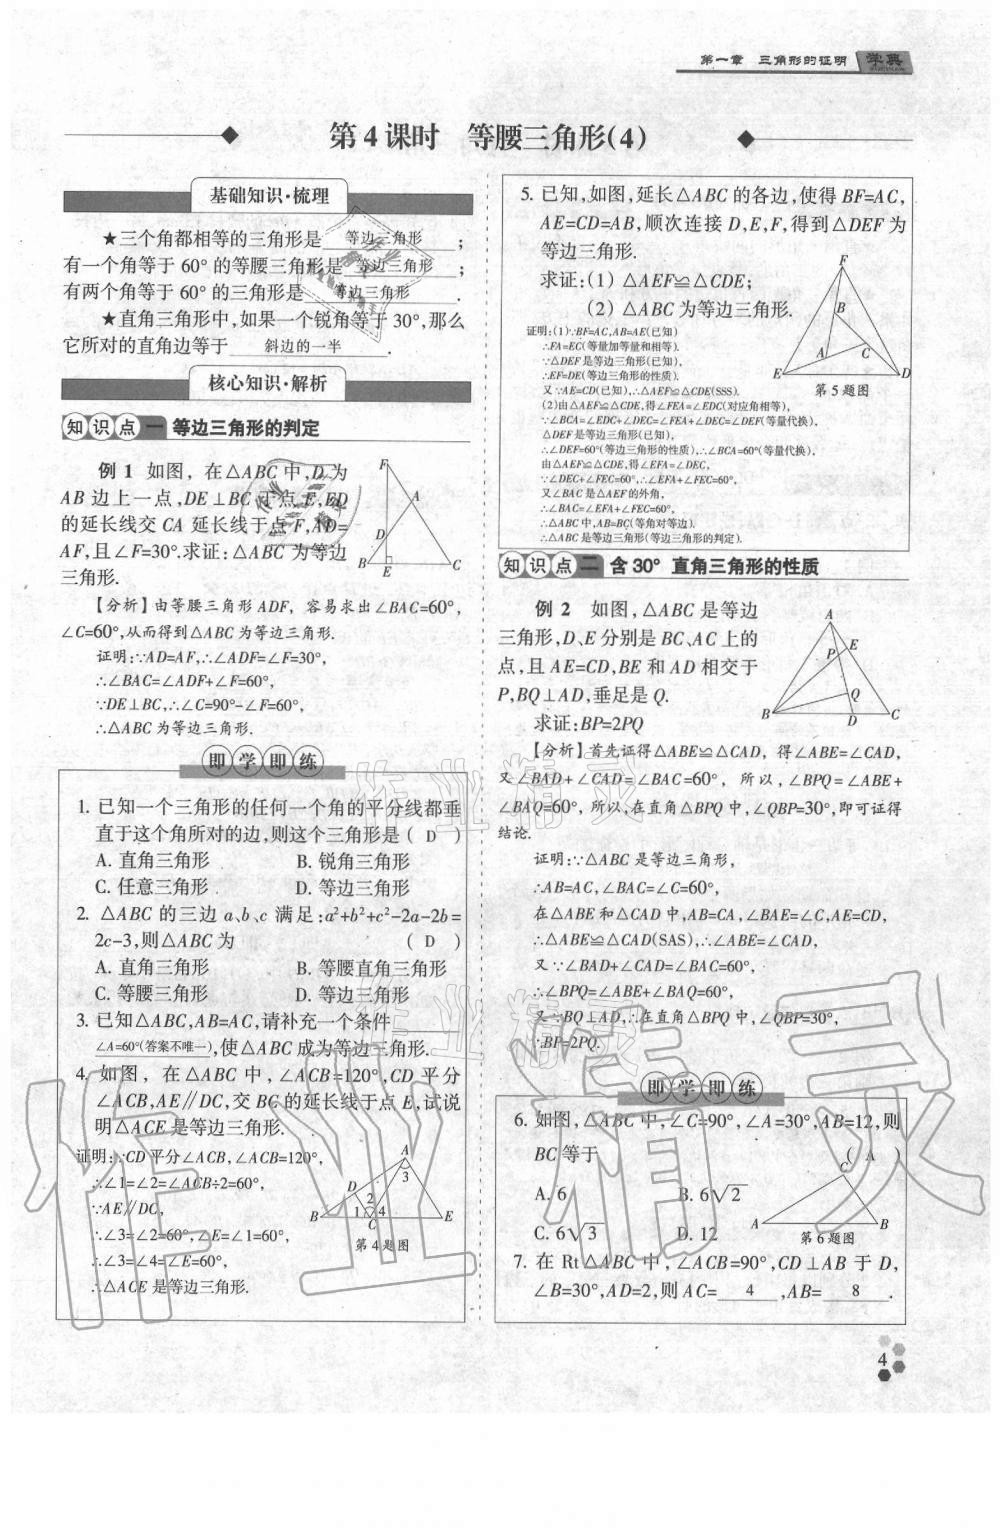 第一章 三角形的证明 学典
第4课时 等腰三角形(4)
基础知识·梳理
★三个角都相等的三角形是 等边三角形 ;
有一个角等于60°的等腰三角形是 等边三角形 ;
有两个角等于60°的三角形是 等边三角形 .
★直角三角形中,如果一个锐角等于30°,那么
它所对的直角边等于 斜边的一半 .
核心知识·解析
知识点一 等边三角形的判定
例1 如图,在△ABC中,D为
AB边上一点,DE⊥BC于点E,ED
的延长线交CA延长线于点F,AD=
AF,且∠F=30°.求证:△ABC为等边
三角形.
F
A
D
B
E
C
【分析】由等腰三角形ADF,容易求出∠BAC=60°,
∠C=60°,从而得到△ABC为等边三角形.
证明:∵AD=AF,∴∠ADF=∠F=30°,
∴∠BAC=∠ADF+∠F=60°,
∵DE⊥BC,∴∠C=90°-∠F=60°,
∴△ABC为等边三角形.
即学即练
1. 已知一个三角形的任何一个角的平分线都垂
直于这个角所对的边,则这个三角形是( D )
A. 直角三角形 B. 锐角三角形
C. 任意三角形 D. 等边三角形
2. △ABC的三边a、b、c满足:a²+b²+c²-2a-2b=
2c-3,则△ABC为 ( D )
A. 直角三角形 B. 等腰直角三角形
C. 等腰三角形 D. 等边三角形
3. 已知△ABC,AB=AC,请补充一个条件
∠A=60°(答案不唯一),使△ABC成为等边三角形.
4. 如图,在△ABC中,∠ACB=120°,CD平分
∠ACB,AE∥DC,交BC的延长线于点E,试说
明△ACE是等边三角形.
证明:∵CD平分∠ACB,∠ACB=120°,
∴∠1=∠2=∠ACB÷2=60°,
∵AE∥DC,
∴∠3=∠2=60°,∠E=∠1=60°,
∴∠3=∠4=∠E=60°,
∴△ACE是等边三角形.
A
3
D
2
1 4
B C E
第4题图
5. 已知,如图,延长△ABC的各边,使得BF=AC,
AE=CD=AB,顺次连接D,E,F,得到△DEF为
等边三角形.
求证:(1) △AEF≌△CDE;
(2) △ABC为等边三角形.
证明:(1)∵BF=AC,AB=AE(已知)
∴FA=EC(等量加等量和相等).
∵△DEF是等边三角形(已知),
∴EF=DE(等边三角形的性质).
又∵AE=CD(已知),∴△AEF≌△CDE(SSS).
(2)由△AEF≌△CDE,得∠FEA=∠EDC(对应角相等),
∵∠BCA=∠EDC+∠DEC=∠FEA+∠DEC=∠DEF(等量代换),
△DEF是等边三角形(已知),
∴∠DEF=60°(等边三角形的性质),∴∠BCA=60°(等量代换),
由△AEF≌△CDE,得∠EFA=∠DEC,
∵∠DEC+∠FEC=60°,∴∠EFA+∠FEC=60°,
又∠BAC是△AEF的外角,
∴∠BAC=∠EFA+∠FEC=60°,
∴△ABC中,AB=BC(等角对等边).
∴△ABC是等边三角形(等边三角形的判定).
F
B
A C
E D
第5题图
知识点二 含30° 直角三角形的性质
例2 如图,△ABC是等边
三角形,D、E分别是BC、AC上的
点,且AE=CD,BE和AD相交于
P,BQ⊥AD,垂足是Q.
求证:BP=2PQ
A
P E
Q
B D C
【分析】首先证得△ABE≌△CAD,得∠ABE=∠CAD,
又∠BAD+∠CAD=∠BAC=60°,所以,∠BPQ=∠ABE+
∠BAQ=60°,所以,在直角△BPQ中,∠QBP=30°,即可证得
结论.
证明:∵△ABC是等边三角形,
∴AB=AC,∠BAC=∠C=60°,
在△ABE和△CAD中,AB=CA,∠BAE=∠C,AE=CD,
∴△ABE≌△CAD(SAS),∴∠ABE=∠CAD,
又∵∠BAD+∠CAD=∠BAC=60°,
∴∠BPQ=∠ABE+∠BAQ=60°,
又∵BQ⊥AD,∴在直角△BPQ中,∠QBP=30°,
∴BP=2PQ.
即学即练
6. 如图,△ABC中,∠C=90°,∠A=30°,AB=12,则
BC等于 ( A )
A. 6 B. 6√2
C. 6√3 D. 12
C
A B
第6题图
7. 在Rt△ABC中,∠ACB=90°,CD⊥AB于D,
∠B=30°,AD=2,则AC= 4 ,AB= 8 .
4
作业精灵
作业精灵
作业精灵